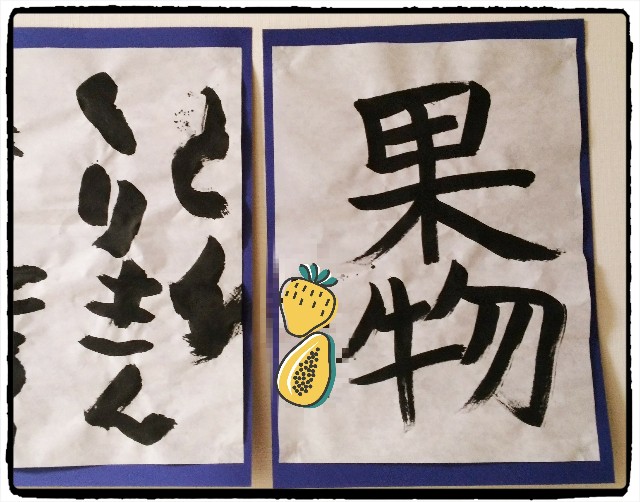 果物
くりきん
とん